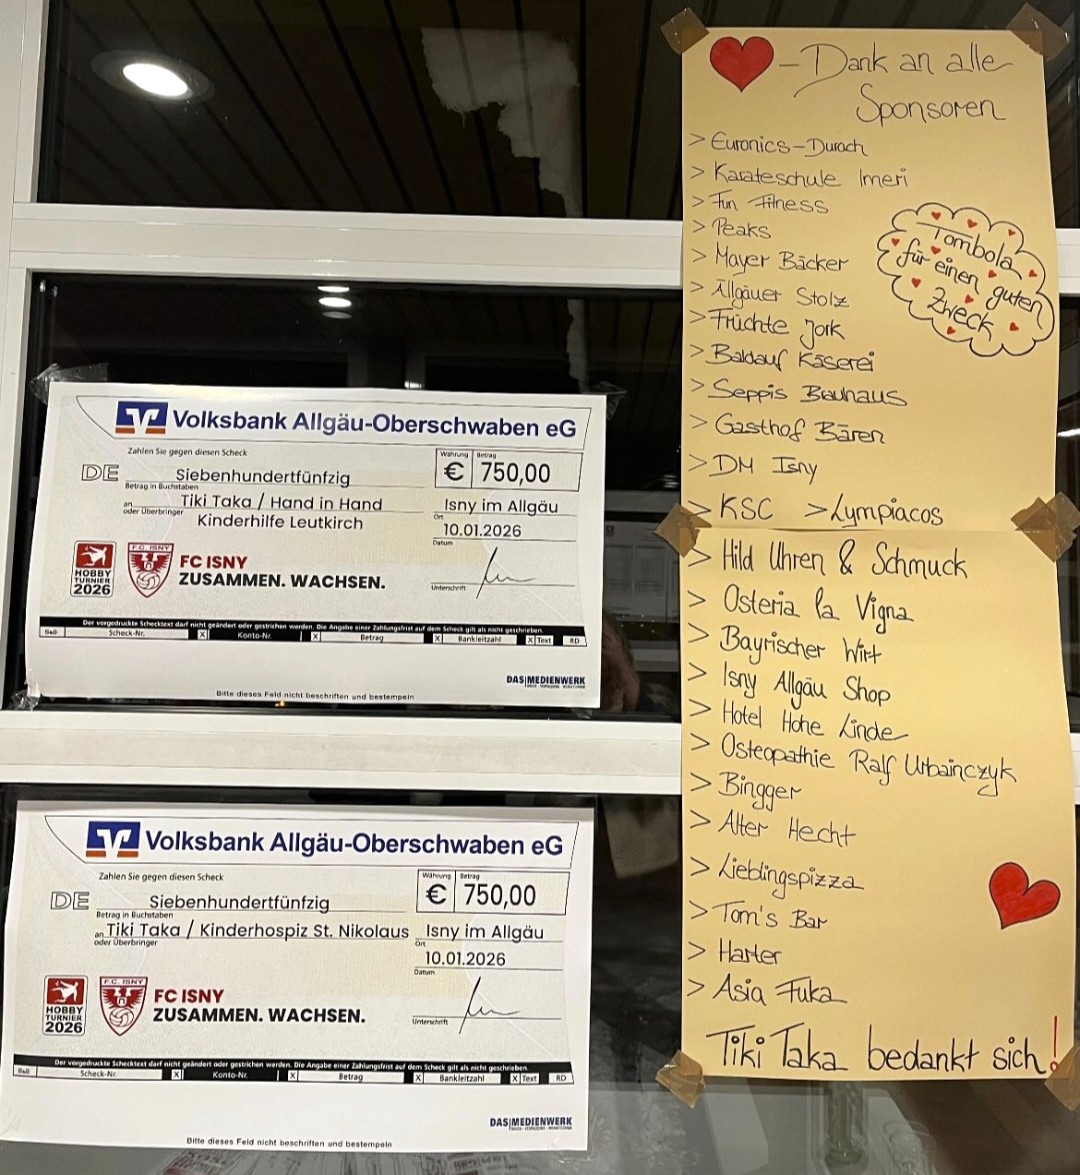 Volksbank Allgäu-Oberschwaben eG
Zahlen Sie gegen diesen Scheck
DE
Siebenhundertfünfzig
Betrag in Buchstaben
Währung
€
Betrag
750,00
an
oder Überbringer
Tiki Taka / Hand in Hand
Kinderhilfe Leutkirch
Isny im Allgäu
Ort
10.01.2026
Datum
Unterschrift
HOBBY
TURNIER
2026
F.C. ISNY
FC ISNY
ZUSAMMEN. WACHSEN.
Der vorgedruckte Schecktext darf nicht geändert oder gestrichen werden. Die Angabe einer Zahlungsfrist auf dem Scheck gilt als nicht geschrieben.
Scheck-Nr. X Konto-Nr. X Betrag X Bankleitzahl X Text RD
DAS|MEDIENWERK
Bitte dieses Feld nicht beschriften und bestempeln
Volksbank Allgäu-Oberschwaben eG
Zahlen Sie gegen diesen Scheck
DE
Siebenhundertfünfzig
Betrag in Buchstaben
Währung
€
Betrag
750,00
an
oder Überbringer
Tiki Taka / Kinderhospiz St. Nikolaus
Isny im Allgäu
Ort
10.01.2026
Datum
Unterschrift
HOBBY
TURNIER
2026
F.C. ISNY
FC ISNY
ZUSAMMEN. WACHSEN.
Der vorgedruckte Schecktext darf nicht geändert oder gestrichen werden. Die Angabe einer Zahlungsfrist auf dem Scheck gilt als nicht geschrieben.
Scheck-Nr. X Konto-Nr. X Betrag X Bankleitzahl X Text RD
DAS|MEDIENWERK
Bitte dieses Feld nicht beschriften und bestempeln
– Dank an alle
Sponsoren
> Euronics-Durach
> Karateschule Imeri
> Fun Fitness
> Peaks
> Mayer Bäcker
> Allgäuer Stolz
> Früchte Jork
> Baldauf Käserei
> Seppis Bauhaus
> Gasthof Bären
> DM Isny
> KSC > Lympiacos
Tombola
für einen guten
Zweck
> Hild Uhren & Schmuck
> Osteria la Vigna
> Bayrischer Wirt
> Isny Allgäu Shop
> Hotel Hohe Linde
> Osteopathie Ralf Urbainczyk
> Bingger
> Alter Hecht
> Lieblingspizza
> Tom's Bar
> Harter
> Asia Fuka
Tiki Taka bedankt sich!